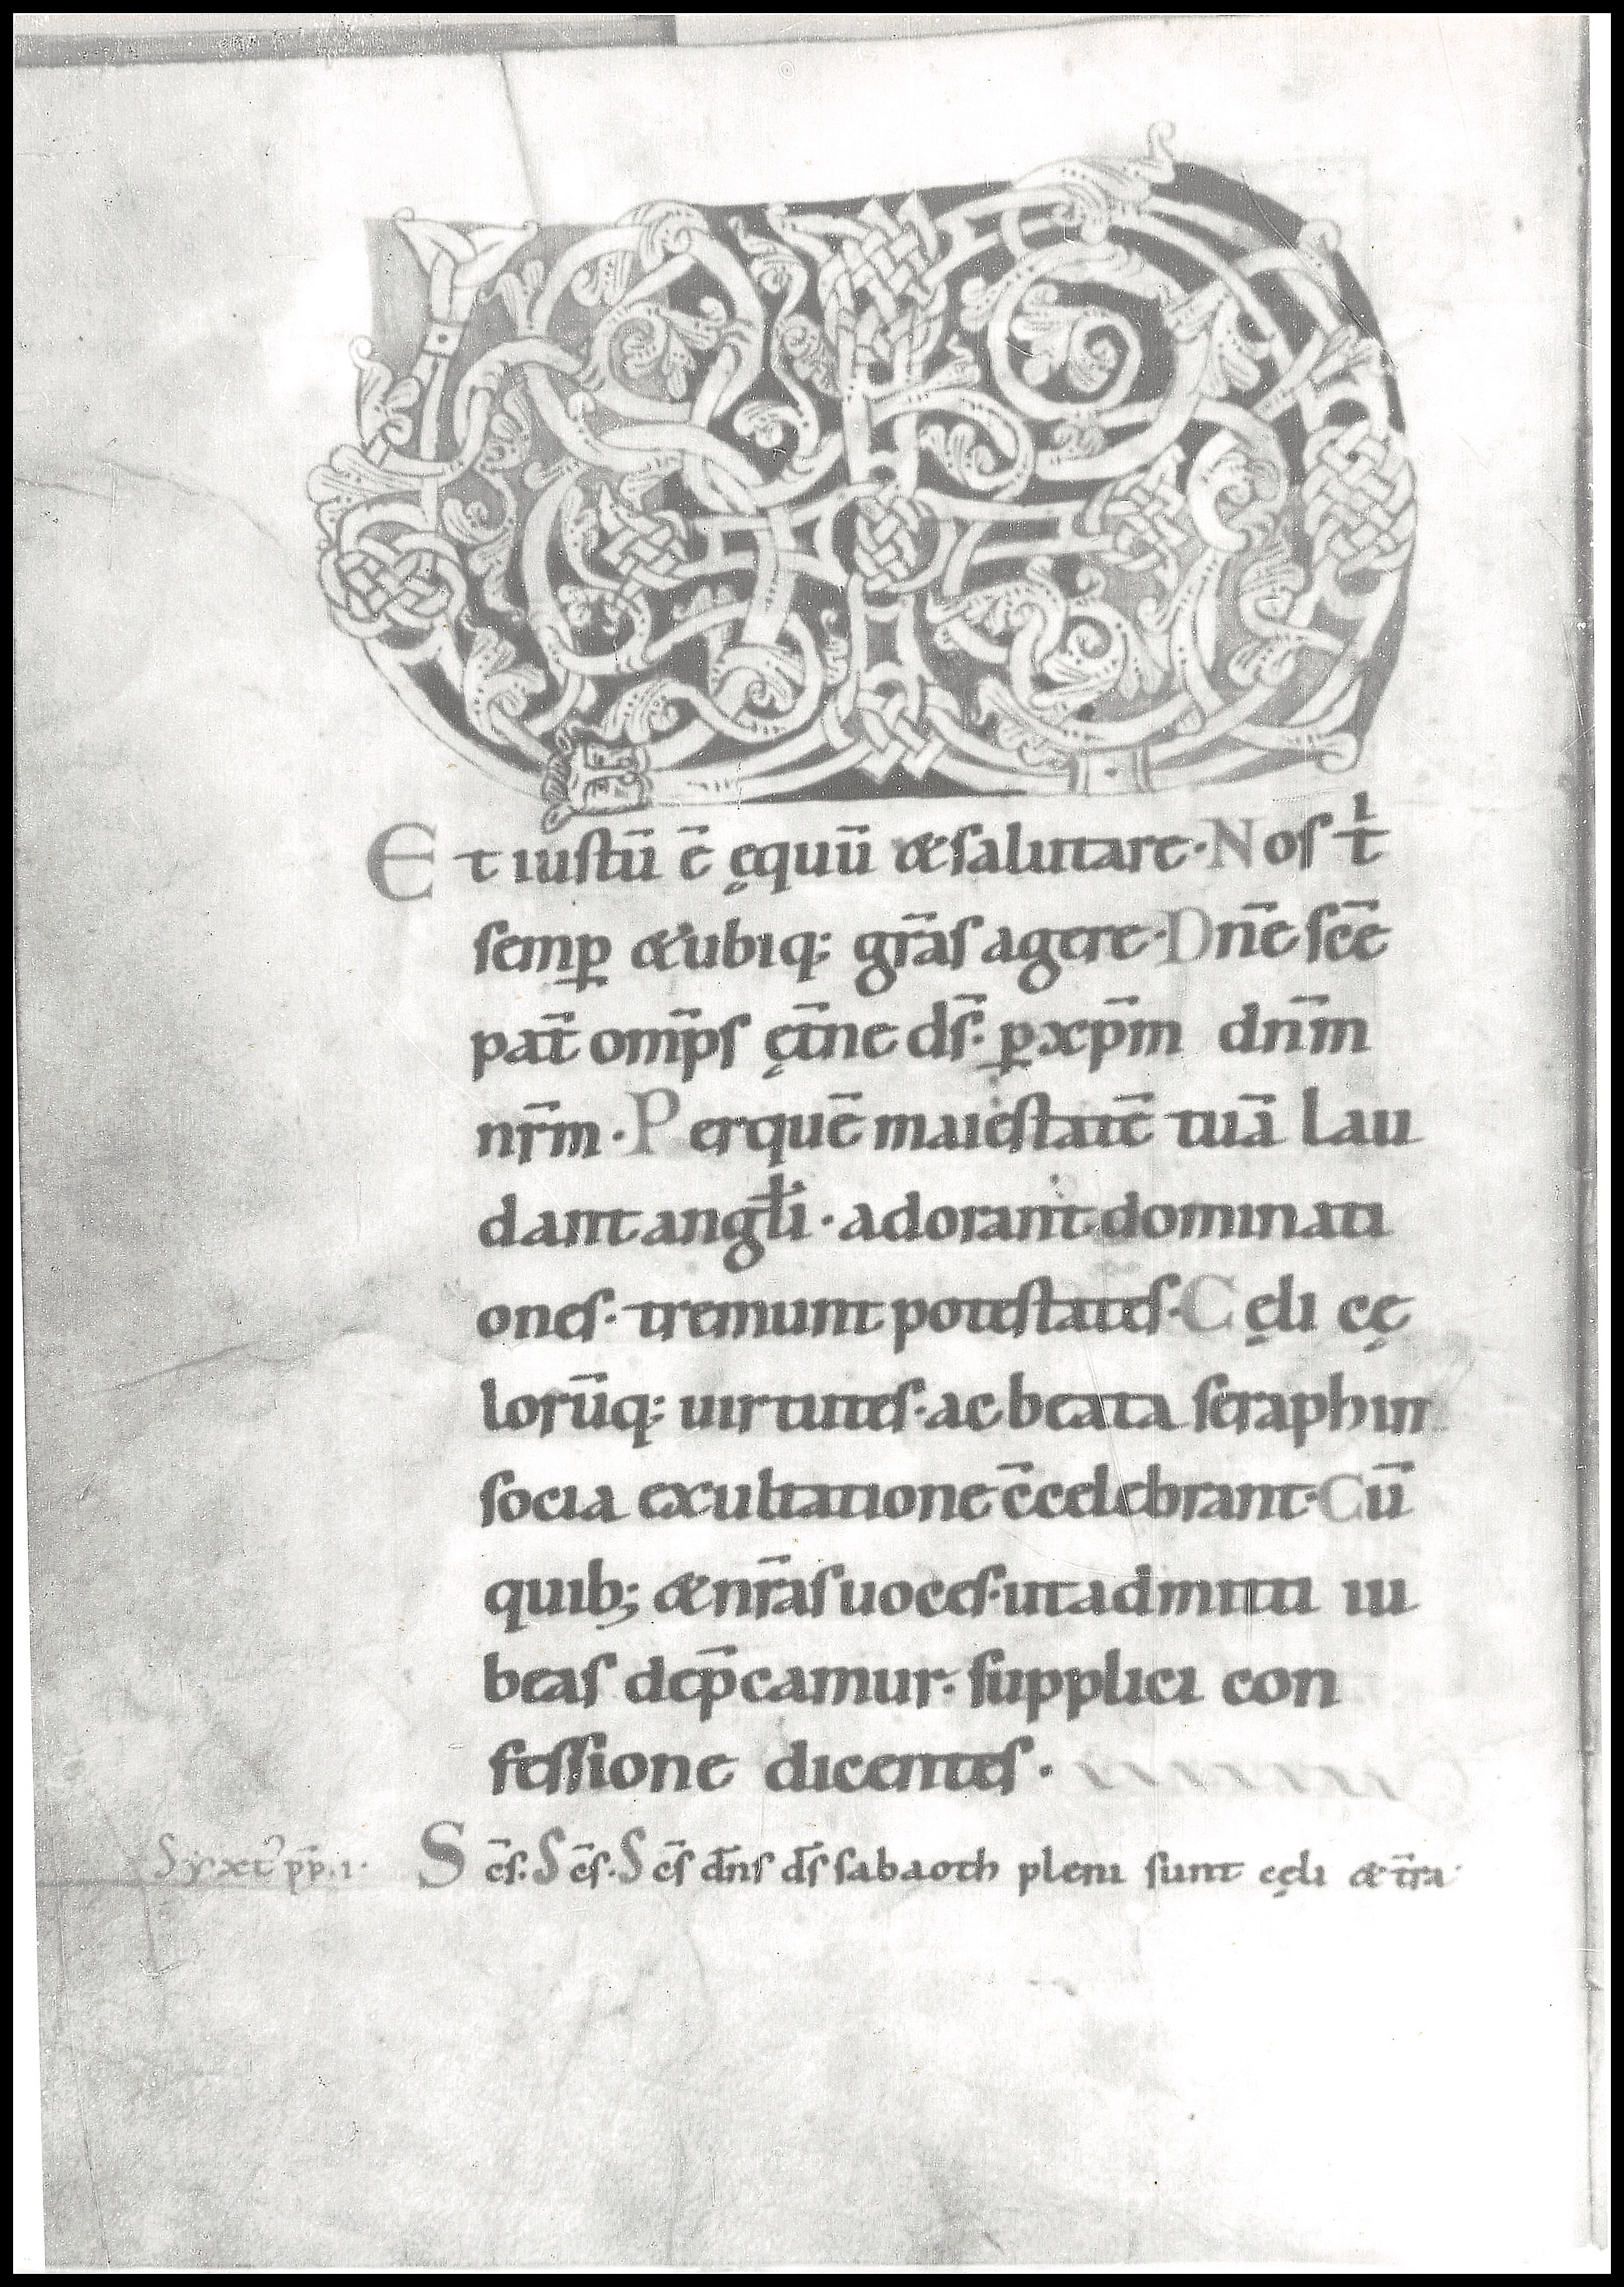 Et iustū ē ęquū &salutare·Nos t̄
semꝑ &ubiq: gr̄as agere·Dn̄e sc̄e
pat̄ omp̄s ęt̄ne ds̄· ꝑxp̄m dn̄m
nr̄m·Perquē maiestatē tuā lau
dant angl̄i·adorant dominati
ones·tremunt potestates·Cęli cę
lorūq: uirtutes·ac beata seraphin
socia exultatione c̄celebrant·Cū
quib; &nr̄as uoces·utadmitti iu
beas dep̄camur·supplici con
fessione dicentes·
Syxt᾿ pp̄·1· Sc̄s·Sc̄s·Sc̄s dn̄s ds̄ sabaoth pleni sunt cęli & t̄ra·